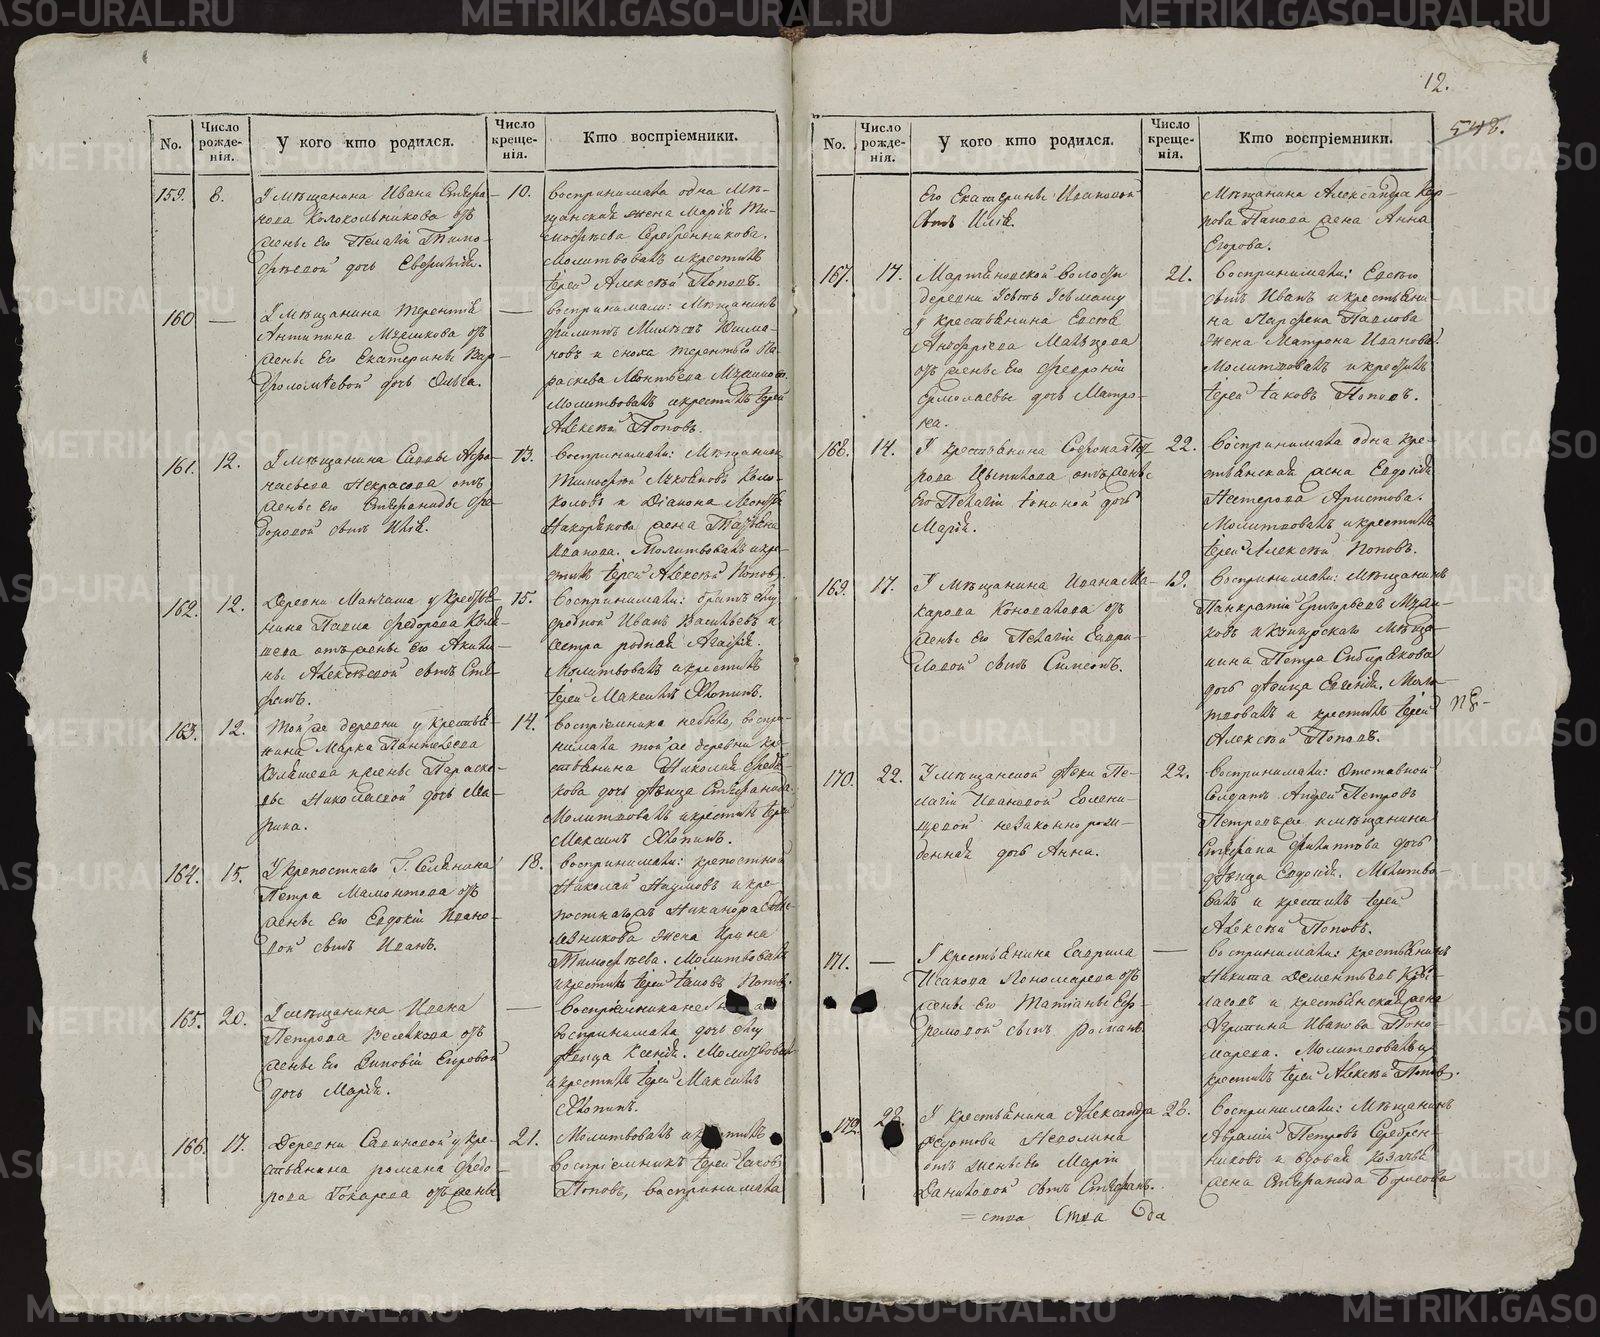 METRIKI.GASO-URAL.RU
12.
548.
No.
Число рожденія.
У кого кто родился.
Число крещенія.
Кто воспріемники.
159.
8.
У мѣщанина Ивана Стефа-
нова Колокольникова отъ
жены его Пелагіи Тимо-
фѣевой дочь Евфимія.
10.
Воспринимала одна мѣ-
щанская жена Марія Ти-
мофѣева Серебренникова.
Молитвовалъ и крестилъ
Іерей Алексѣй Поповъ.
160
—
У мѣщанина Терентія
Антипина
жены его Екатерины Вар-
фоломѣевой дочь Ольга.
—
Воспринимали: Мѣщанинъ
Филиппъ
и сноха Терентьева Па-
раскева Леонтьева
Молитвовалъ и крестилъ Іерей
Алексѣй Поповъ.
161.
12.
У мѣщанина Саввы Афа-
насьева Некрасова отъ
жены его Стефаниды Фе-
доровой сынъ Илія.
13.
Воспринимали: Мѣщанинъ
Тимофей
и Діакона
жена
Иванова. Молитвовалъ и кре-
стилъ Іерей Алексѣй Поповъ.
162.
12.
Деревни Манчажа у крестья-
нина Павла Федорова
отъ жены его Акили-
ны Алексѣевой сынъ Сте-
фанъ.
15.
Воспринимали: братъ ему
родной Иванъ Васильевъ и
сестра родная Агафія.
Молитвовалъ и крестилъ
Іерей Максимъ Хлопинъ.
163.
12.
Той же деревни у крестья-
нина Марка Пантилеева
жены Параске-
вы Николаевой дочь Ма-
рина.
14.
Воспріемника небыло, воспри-
нимала той же деревни кре-
стьянина Николая
дочь дѣвица Стефанида
Молитвовалъ и крестилъ Іерей
Максимъ Хлопинъ.
164.
15.
У крепостнаго Г.
Петра Мамонтова отъ
жены его Евдокіи Ивано-
вой сынъ Иванъ.
18.
Воспринимали: крепостной
Николай Наумовъ и кре-
постнаго жъ Никанора
жена Ирина
Тимофѣева. Молитвовалъ
и крестилъ Іерей Іаковъ Поповъ.
165.
20.
У мѣщанина Ивана
Петрова Веселкова отъ
жены его Зиновіи Егоровой
дочь Марія.
—
Воспріемника не
воспринимала дочь ему
дѣвица Ксенія. Молитвовалъ
и крестилъ Іерей Максимъ
Хлопинъ.
166.
17.
Деревни Савиновой у кре-
стьянина Романа Федо-
рова Токарева отъ жены
21.
Молитвовалъ и крестилъ
воспріемникъ Іерей Іаковъ
Поповъ, воспринимала
No.
Число рожденія.
У кого кто родился.
Число крещенія.
Кто воспріемники.
его Екатерины Ивановой
сынъ Илія.
Мѣщанина Александра Кар-
пова Попова жена Анна
Егорова.
167.
17.
Мартяновской волости
деревни Усть
у крестьянина Евсея
Анофріева Мальцова
отъ жены его Февроніи
Ермолаевы дочь Матро-
на.
21.
Воспринимали: Евсею
сынъ Иванъ и крестьяни-
на Парфена Павлова
жена Матрона Иванова.
Молитвовалъ и крестилъ
Іерей Іаковъ Поповъ.
168.
14.
У крестьянина Софрона Пет-
рова Цыпилова отъ жены
его Пелагіи Іониной дочь
Марія.
22.
Воспринимала одна кре-
стьянская жена Евдокія
Нестерова Аристова.
Молитвовалъ и крестилъ
Іерей Алексѣй Поповъ.
169.
17.
У мѣщанина Ивана Ма-
карова Коновалова отъ
жены его Пелагіи Гаври-
ловой сынъ Симеонъ.
19.
Воспринимали: мѣщанинъ
Панкратій Григорьевъ
и Кунгурскаго мѣща-
нина Петра Сибирякова
дочь дѣвица Евгенія. Моли-
твовалъ и крестилъ Іерей
Алексѣй Поповъ.
170.
22.
У мѣщанской дѣвки Пе-
лагіи Ивановой Голени-
щевой незаконно рож-
денная дочь Анна.
22.
Воспринимали: Отставной
Солдатъ Андрей Петровъ
и мѣщанина
Стефана Филиппова дочь
дѣвица Евдокія. Молитво-
валъ и крестилъ Іерей
Алексѣй Поповъ.
171.
—
У крестьянина Гаврила
Исакова Пономарева отъ
жены его Татіаны Еф-
ремовой сынъ Романъ.
—
Воспринимали: крестьянинъ
Никита Дементьевъ
и крестьянская жена
Агрипина Иванова Поно-
марева. Молитвовалъ и
крестилъ Іерей Алексѣй Поповъ.
172.
23.
У крестьянина Александра
Неволина
отъ жены его Маріи
Даниловой сынъ Стефанъ.
23.
Воспринимали: Мѣщанинъ
Авраамій Петровъ Серебрен-
никовъ и вдовая казачья
жена Стефанида Борисова